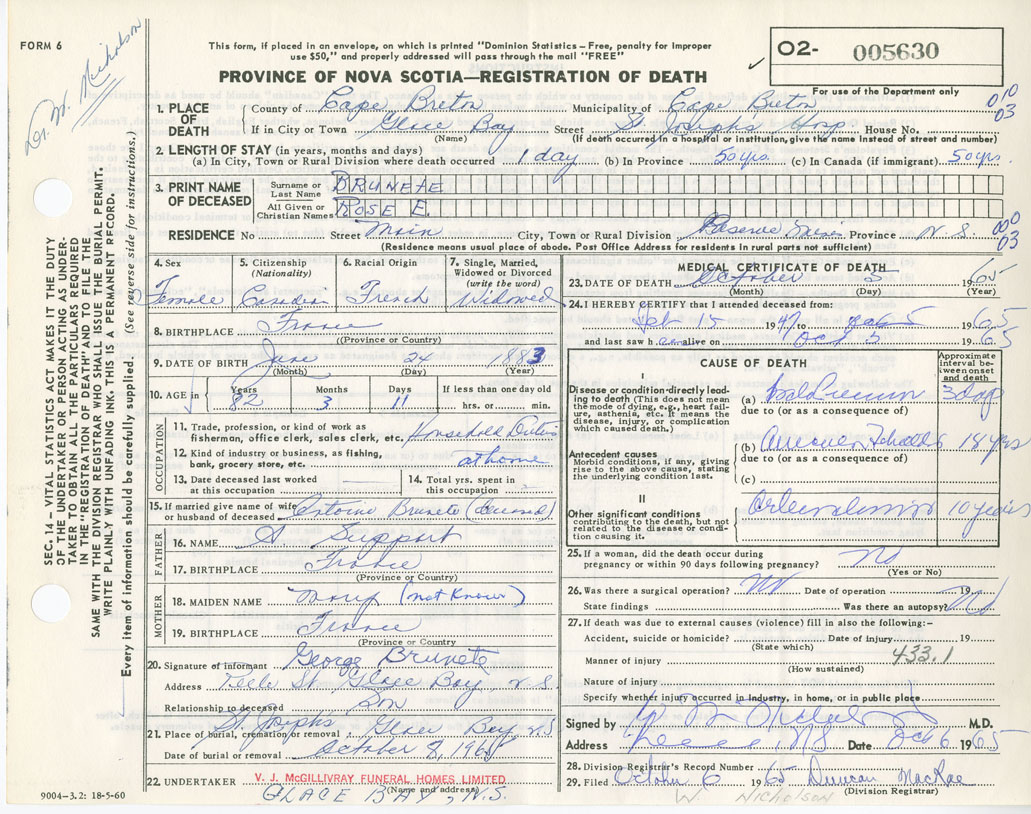 FORM 6
Dr. W. Nicholson
This form, if placed in an envelope, on which is printed "Dominion Statistics—Free, penalty for Improper
use $50," and properly addressed will pass through the mail "FREE"
O2- 005630
For use of the Department only
PROVINCE OF NOVA SCOTIA—REGISTRATION OF DEATH
1. PLACE OF DEATH
County of Cape Breton Municipality of Cape Breton
If in City or Town Glace Bay Street St. Joseph's Hosp. House No.
(Name) (If death occurred in a hospital or institution, give the name instead of street and number)
010
03
2. LENGTH OF STAY (in years, months and days)
(a) In City, Town or Rural Division where death occurred 1 day (b) In Province 50 yrs. (c) In Canada (if immigrant) 50 yrs.
3. PRINT NAME OF DECEASED
Surname or Last Name BRUNETE
All Given or Christian Names ROSE E.
RESIDENCE No Street Main City, Town or Rural Division Reserve Mines Province N.S.
(Residence means usual place of abode. Post Office Address for residents in rural parts not sufficient)
000
03
4. Sex
Female
5. Citizenship
(Nationality)
Canadian
6. Racial Origin
French
7. Single, Married,
Widowed or Divorced
(write the word)
Widowed
8. BIRTHPLACE France
(Province or Country)
9. DATE OF BIRTH June 24 1883
(Month) (Day) (Year)
10. AGE in
Years 82
Months 3
Days 11
If less than one day old
hrs. or min.
OCCUPATION
11. Trade, profession, or kind of work as
fisherman, office clerk, sales clerk, etc. Household Duties
12. Kind of industry or business, as fishing,
bank, grocery store, etc. at home
13. Date deceased last worked
at this occupation
14. Total yrs. spent in
this occupation
15. If married give name of wife
or husband of deceased Antoine Brunete (deceased)
FATHER
16. NAME A Support
17. BIRTHPLACE France
(Province or Country)
MOTHER
18. MAIDEN NAME Mary (not Know)
19. BIRTHPLACE France
(Province or Country)
20. Signature of informant George Brunete
Address St Glace Bay N.S.
Relationship to deceased Son
21. Place of burial, cremation or removal St Josephs Glace Bay, N.S.
Date of burial or removal October 8, 1965
22. UNDERTAKER V. J. McGILLIVRAY FUNERAL HOMES LIMITED
(Name and address)
GLACE BAY, N.S.
9004-3.2: 18-5-60
MEDICAL CERTIFICATE OF DEATH
23. DATE OF DEATH October 5 1965
(Month) (Day) (Year)
24. I HEREBY CERTIFY that I attended deceased from:
Feb 15 1947 to Oct 5 1965
and last saw her alive on Oct 5 1965
CAUSE OF DEATH
Approximate interval between onset and death
I
Disease or condition directly leading to death (This does not mean the mode of dying, e.g., heart failure, asthenia, etc. It means the disease, injury, or complication which caused death.)
(a) 3 days
due to (or as a consequence of)
Antecedent causes
Morbid conditions, if any, giving rise to the above cause, stating the underlying condition last.
(b) 18 yrs
due to (or as a consequence of)
(c)
II
Other significant conditions
contributing to the death, but not related to the disease or condition causing it.
10 years
25. If a woman, did the death occur during
pregnancy or within 90 days following pregnancy? No
(Yes or No)
26. Was there a surgical operation? No Date of operation 19
State findings Was there an autopsy? No
27. If death was due to external causes (violence) fill in also the following:—
Accident, suicide or homicide? Date of injury 19
(State which)
433.1
Manner of injury
(How sustained)
Nature of injury
Specify whether injury occurred in industry, in home, or in public place
Signed by M.D.
Address N.S. Date Oct 6 1965
28. Division Registrar's Record Number
29. Filed October 6 1965 Duncan MacRae
(Division Registrar)
W. NICHOLSON
SEC. 14 – VITAL STATISTICS ACT MAKES IT THE DUTY
OF THE UNDERTAKER OR PERSON ACTING AS UNDER-
TAKER TO OBTAIN ALL THE PARTICULARS REQUIRED
IN THE "REGISTRATION OF DEATH" AND TO FILE THE
SAME WITH THE DIVISION REGISTRAR WHO SHALL ISSUE THE BURIAL PERMIT.
WRITE PLAINLY WITH UNFADING INK. THIS IS A PERMANENT RECORD.
Every item of information should be carefully supplied. (See reverse side for instructions.)